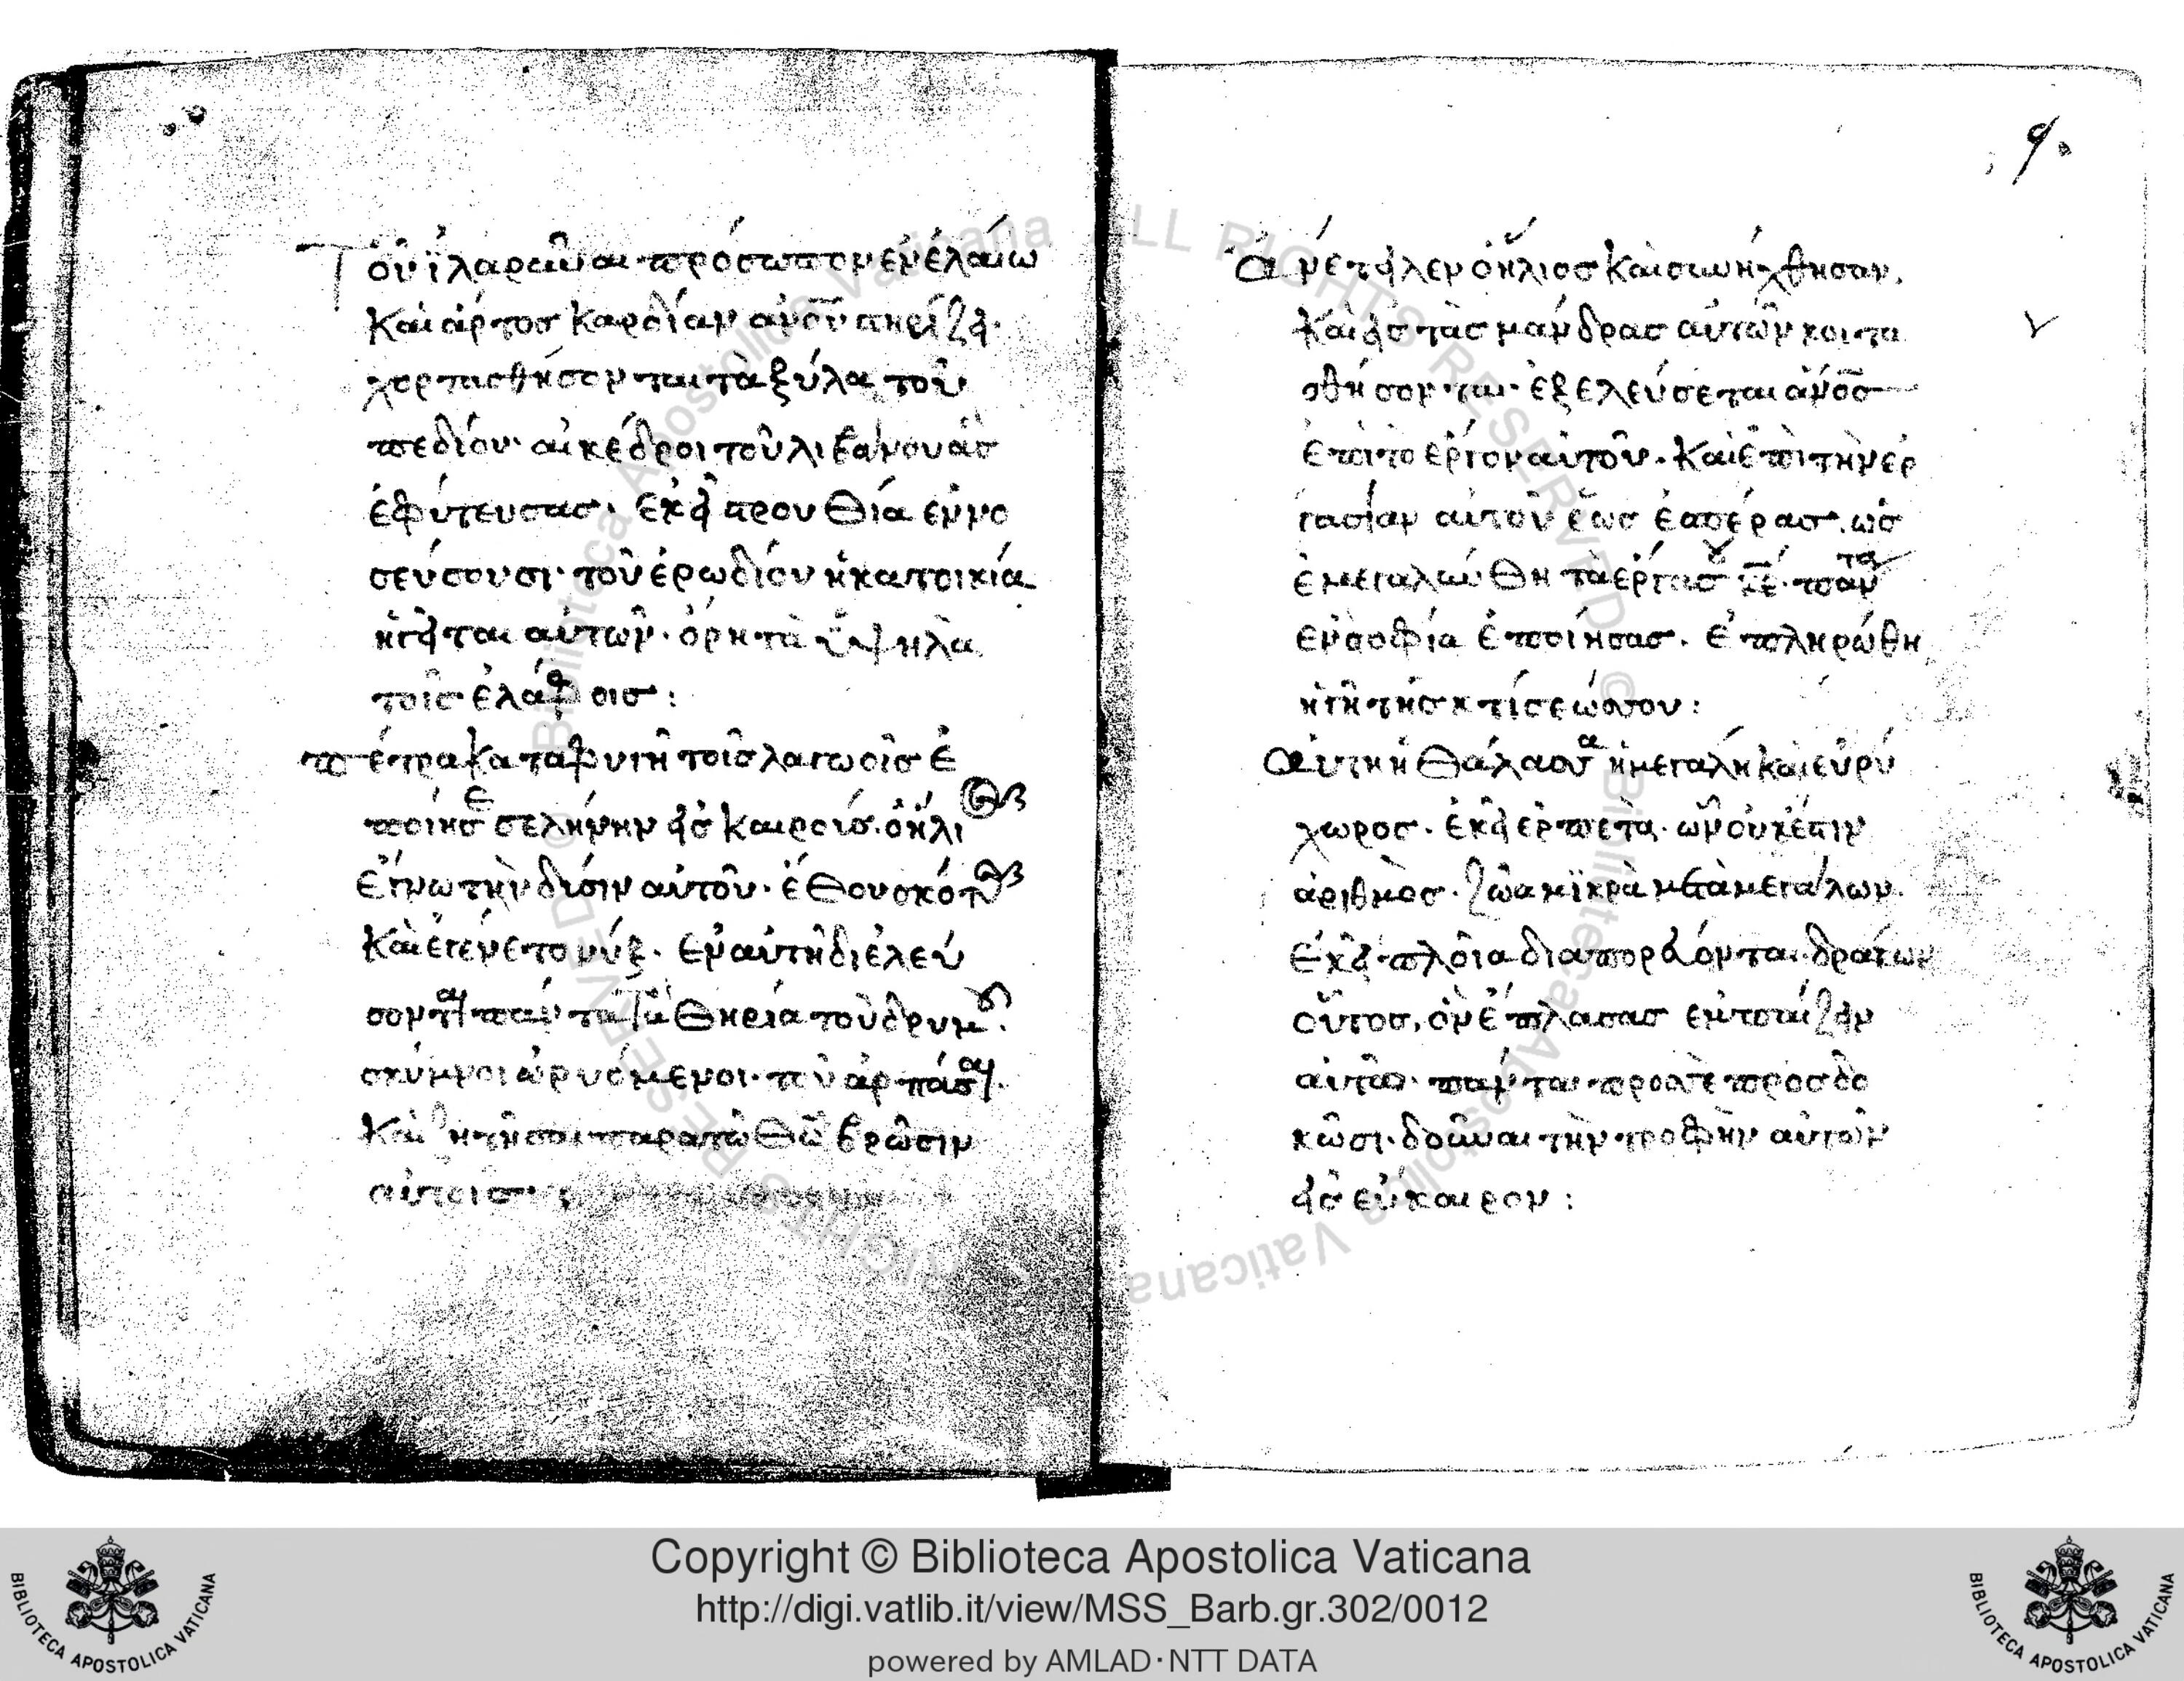 Τοῦ ἱλαρῦναι πρόσωπον ἐν ἐλαίω
καὶ ἄρτος καρδίαν ἀνου στηρίζει·
χορτασθήσονται τὰ ξύλα τοῦ
πεδίου· αἱ κέδροι τοῦ λιβάνου ἃς
ἐφύτευσας· ἐκεῖ στρουθία ἐννο
σεύσουσι· τοῦ ἐρωδίου ἡ κατοικία
ἡγεῖται αὐτῶν· ὄρη τὰ ὑψηλὰ
τοῖς ἐλάφοις:
πέτρα καταφυγὴ τοῖς λαγωοῖς ἐ
ποίησε σελήνην εἰς καιρούς· ὁ ἥλι
ἔγνω τὴν δύσιν αὐτοῦ· ἔθου σκότ
καὶ ἐγένετο νύξ· ἐν αὐτῆ διελεύ
σονται πάντα τὰ θηρία τοῦ δρυμοῦ·
σκύμνοι ὠρυόμενοι· τοῦ ἁρπάσαι·
καὶ ζητῆσαι παρὰ τῶ Θῶ βρῶσιν
αὐτοῖς·
9.
Ἀνέτειλεν ὁ ἥλιος καὶ συνήχθησαν,
καὶ εἰς τὰς μάνδρας αὐτῶν κοιτα
σθήσονται· ἐξελεύσεται ἀνος
ἐπὶ τὸ ἔργον αὐτοῦ· καὶ ἐπὶ τὴν ἐρ
γασίαν αὐτοῦ ἕως ἑσπέρας· ὡς
ἐμεγαλύνθη τὰ ἔργα σου κε· πάντα
ἐν σοφία ἐποίησας· ἐπληρώθη
ἡ γῆ τῆς κτίσεώς σου:
αὕτη ἡ θάλασσα ἡ μεγάλη καὶ εὐρύ
χωρος· ἐκεῖ ἑρπετὰ· ὧν οὐκ ἔστιν
ἀριθμὸς· ζῶα μικρὰ μετὰ μεγάλων·
ἐκεῖ πλοῖα διαπορεύονται· δράκων
οὗτος, ὃν ἔπλασας ἐμπαίζειν
αὐτῶ· πάντα πρὸς σὲ προσδο
κῶσι· δοῦναι τὴν τροφὴν αὐτῶν
εἰς εὔκαιρον:
Copyright © Biblioteca Apostolica Vaticana
http://digi.vatlib.it/view/MSS_Barb.gr.302/0012
powered by AMLAD·NTT DATA
BIBLIOTECA APOSTOLICA VATICANA
BIBLIOTECA APOSTOLICA VATICANA